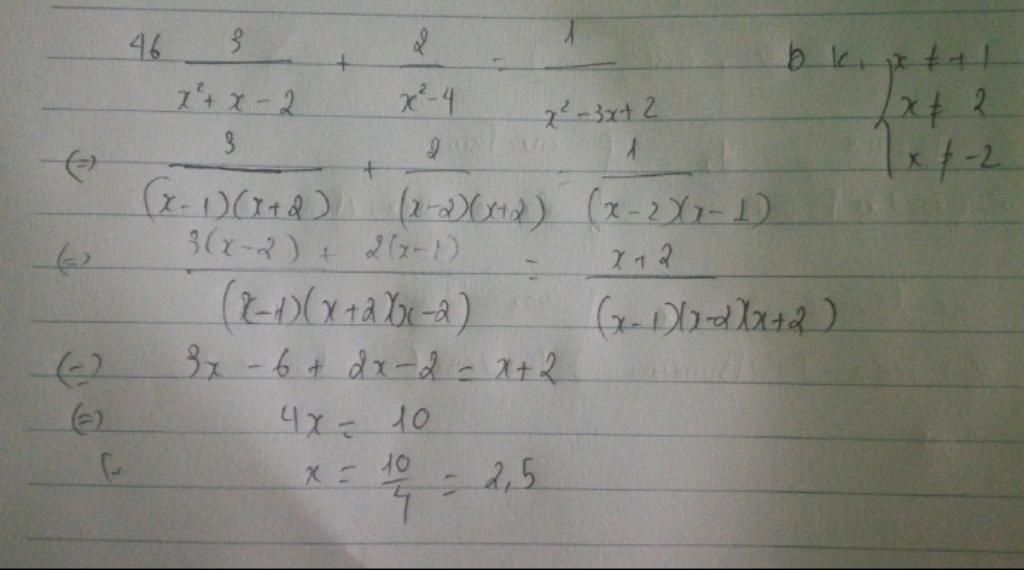 46 3/(x²+x-2) + 2/(x²-4) = 1/(x²-3x+2) ĐK: { x ≠ +1
x ≠ 2
x ≠ -2
(=) 3/((x-1)(x+2)) + 2/((x-2)(x+2)) = 1/((x-2)(x-1))
(=) (3(x-2) + 2(x-1))/((x-1)(x+2)(x-2)) = (x+2)/((x-1)(x-2)(x+2))
(=) 3x - 6 + 2x - 2 = x+2
(=) 4x = 10
x = 10/4 = 2,5